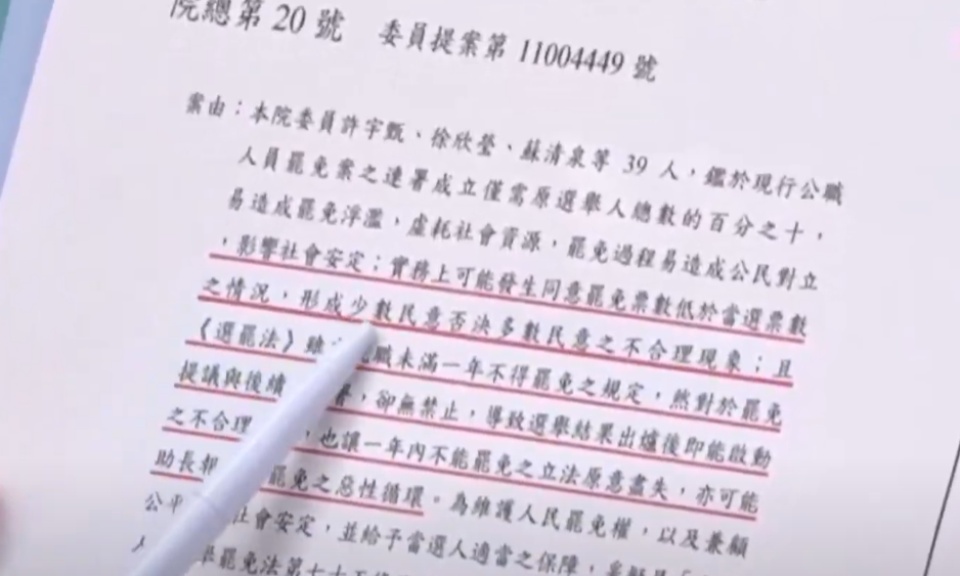 院總第20號 委員提案第11004449號
案由：本院委員許宇甄、徐欣瑩、蘇清泉等 39 人，鑑於現行公職
人員罷免案之連署成立僅需原選舉人總數的百分之十，
易造成罷免浮濫，虛耗社會資源，罷免過程易造成公民對立
，影響社會安定；實務上可能發生同意罷免票數低於當選票數
之情況，形成少數民意否決多數民意之不合理現象；且
《選罷法》雖 職未滿一年不得罷免之規定，然對於罷免
提議與後續 ，卻無禁止，導致選舉結果出爐後即能啟動
之不合理 ，也讓一年內不能罷免之立法原意盡失，亦可能
助長報 罷免之惡性循環。為維護人民罷免權，以及兼顧
公平 社會安定，並給予當選人適當之保障，爰擬具
罷免法第七十五條